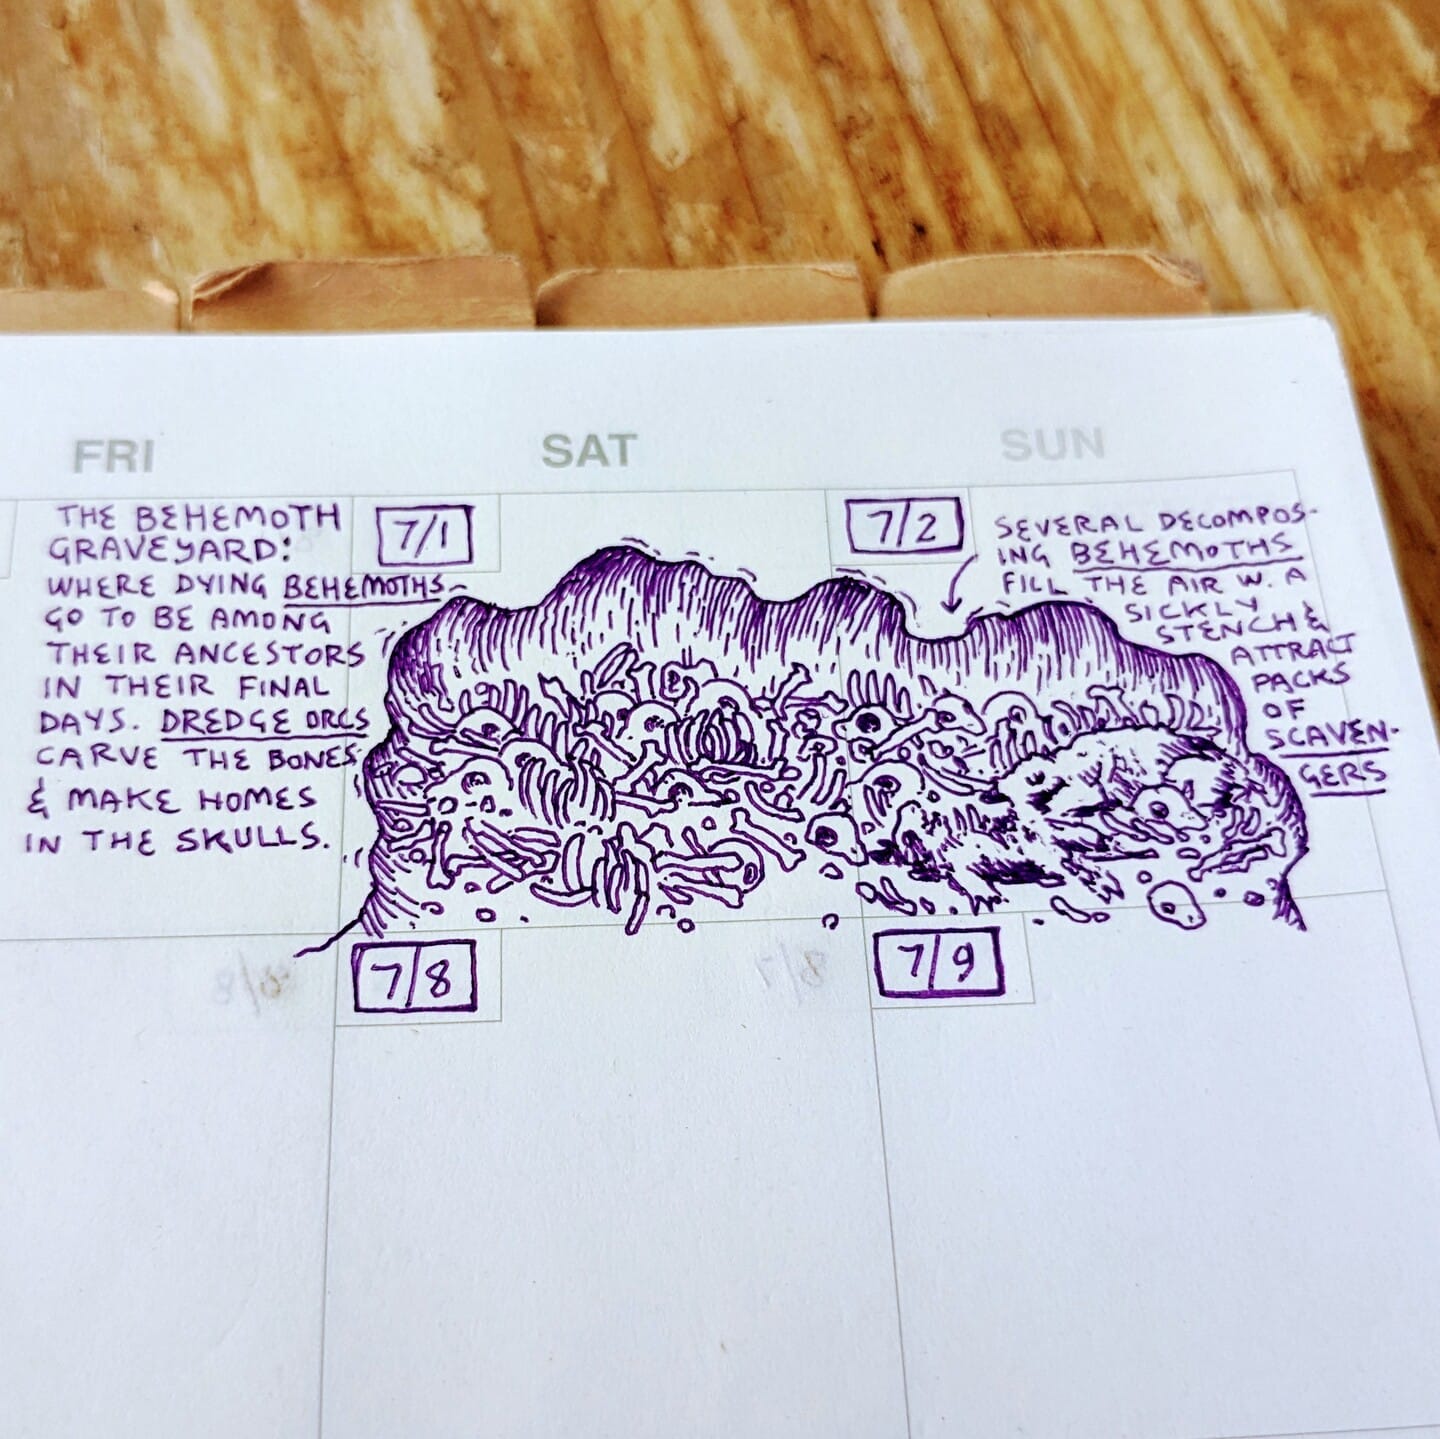 FRI
SAT
SUN
THE BEHEMOTH
GRAVEYARD:
WHERE DYING BEHEMOTHS
GO TO BE AMONG
THEIR ANCESTORS
IN THEIR FINAL
DAYS. DREDGE ORCS
CARVE THE BONES
& MAKE HOMES
IN THE SKULLS.
7/1
7/2
SEVERAL DECOMPOS-
ING BEHEMOTHS
FILL THE AIR W. A
SICKLY
STENCH &
ATTRACT
PACKS
OF
SCAVEN-
GERS
7/8
7/9